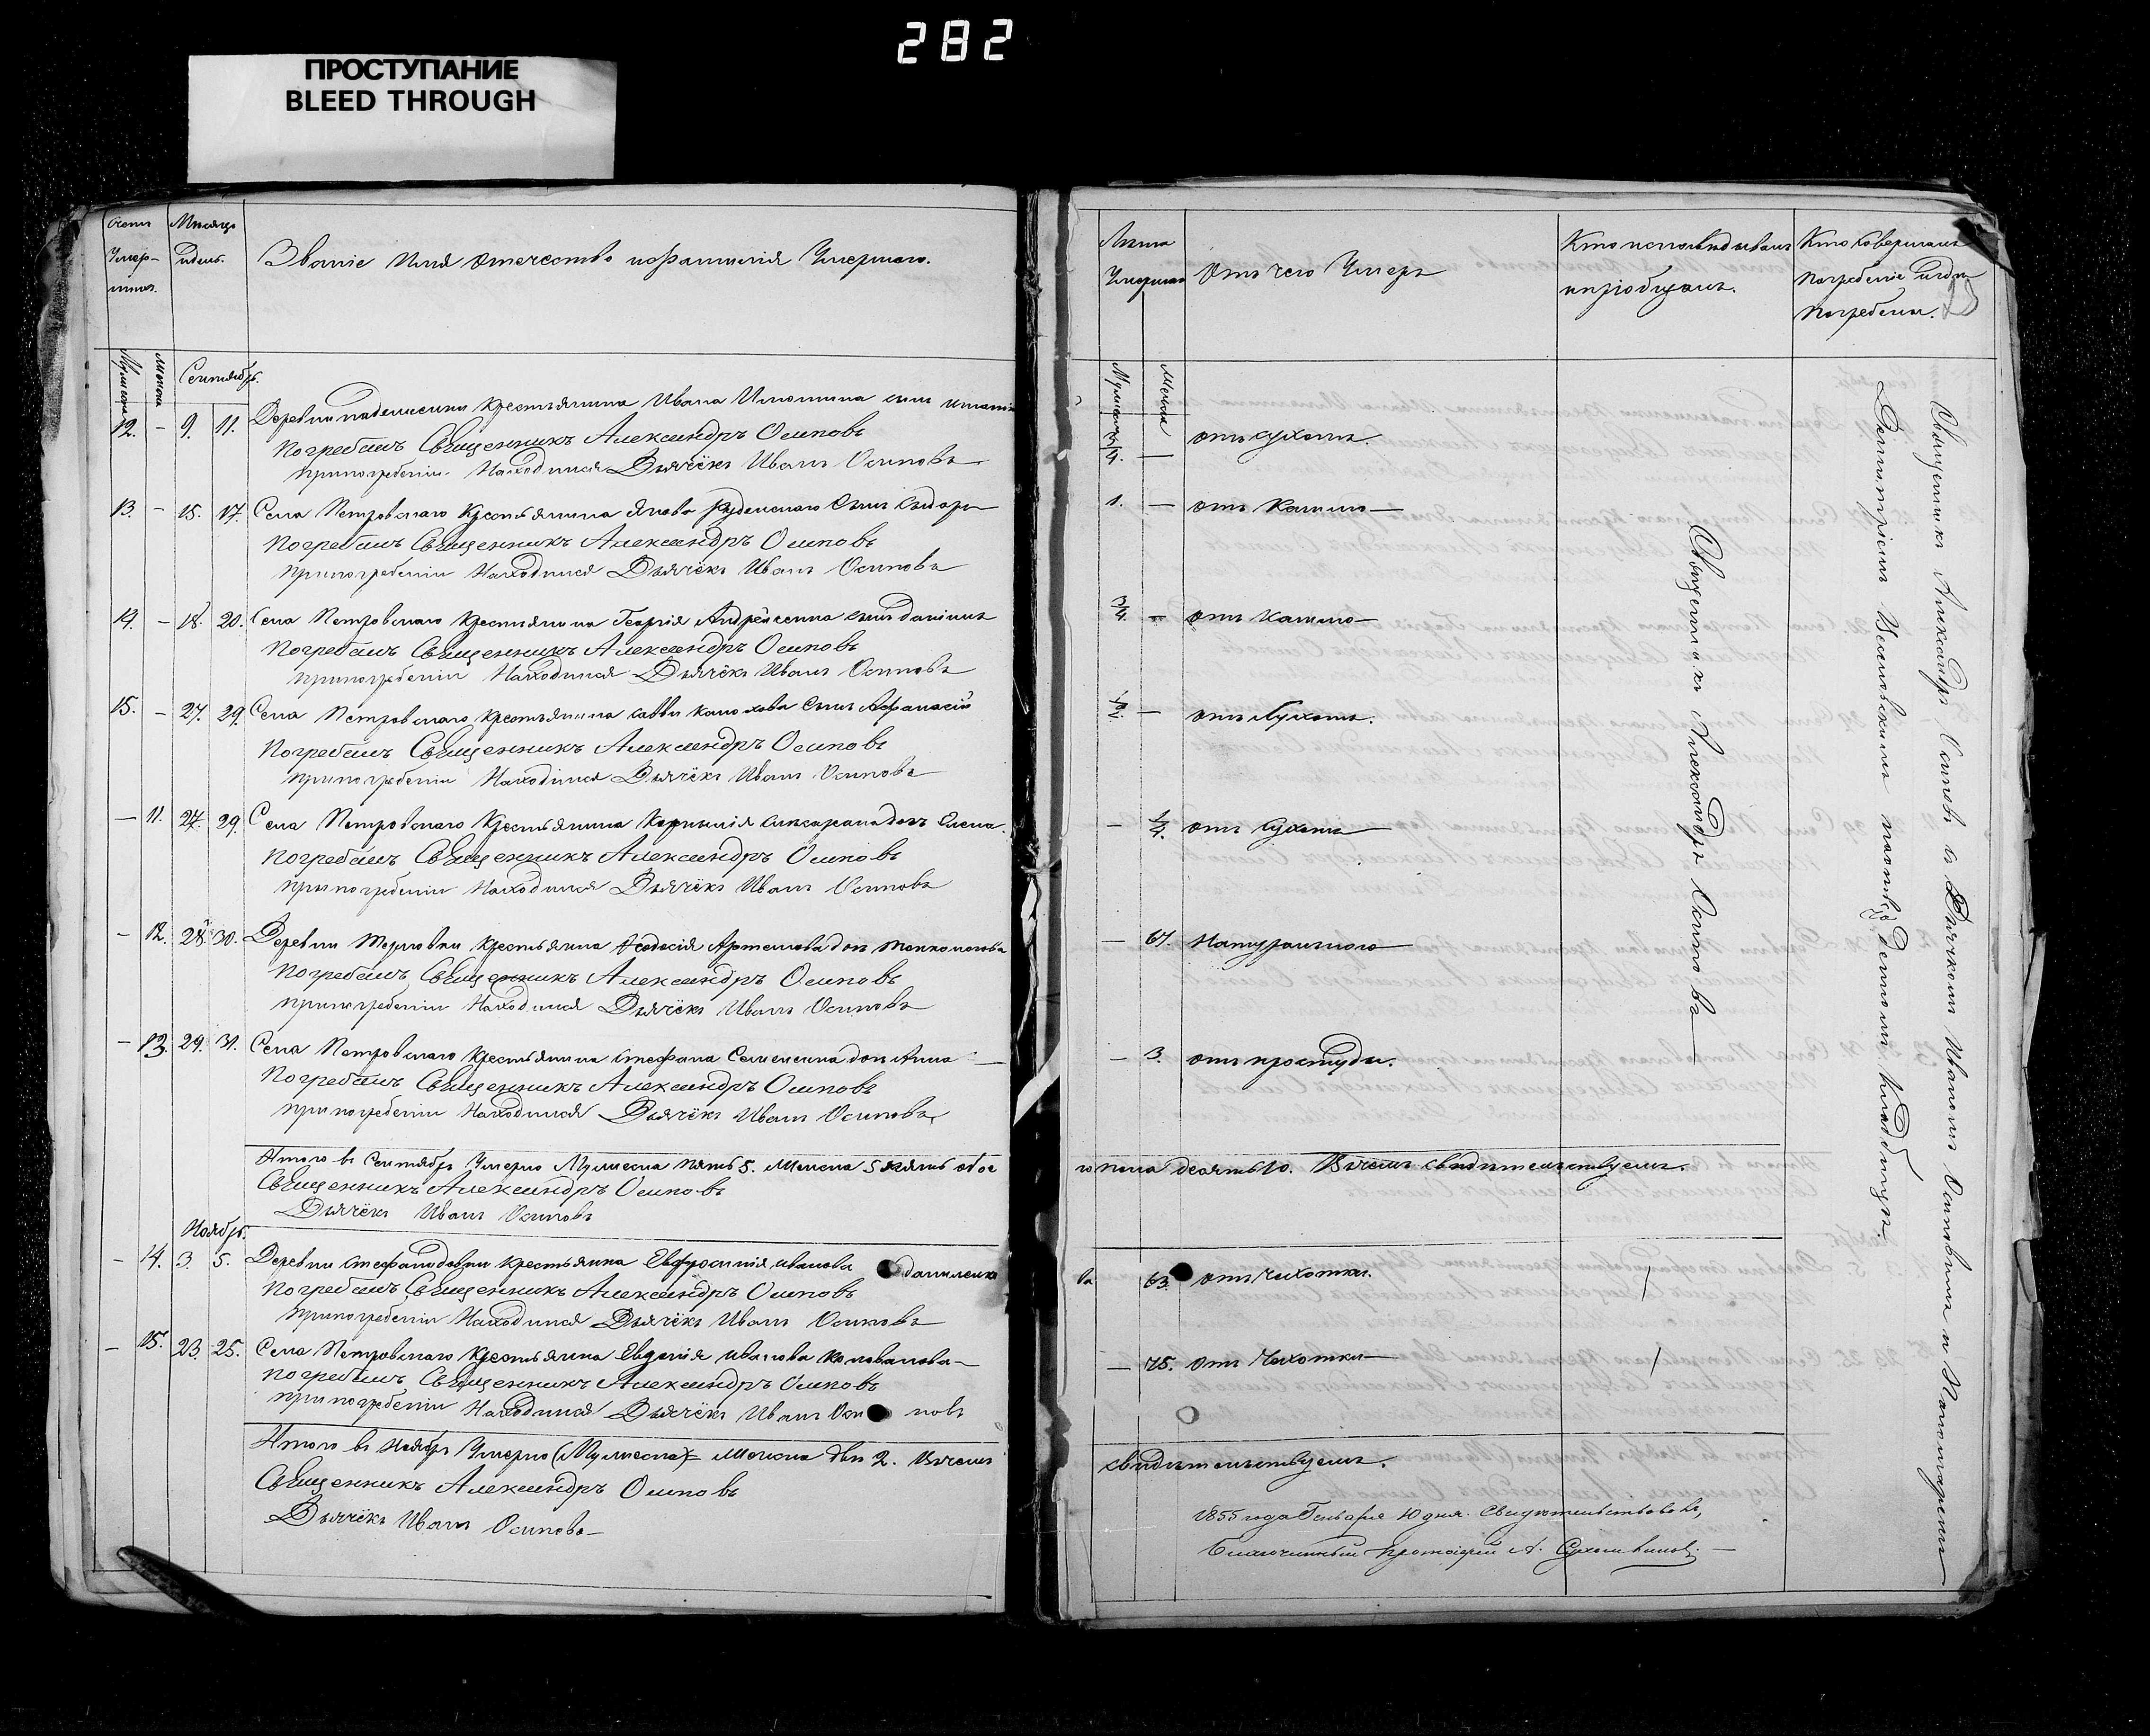 282
ПРОСТУПАНИЕ
BLEED THROUGH
Счетъ Умер-шихъ.
Мѣсяцъ и день.
Званіе Имя Отечество и фамилія Умершаго.
Мужеска
Женска
Сентябрь.
12. – 9. 11. Деревни крестьянина Ивана сынъ
Погребалъ Священникъ Александръ Осиповъ
При погребеніи Находился Дьячёкъ Иванъ Осиповъ
13. – 15. 17. Села Петровскаго Крестьянина Якова Руденскаго Сынъ Сидоръ
Погребалъ Священникъ Александръ Осиповъ
При погребеніи Находился Дьячёкъ Иванъ Осиповъ
14. – 18. 20. Села Петровскаго Крестьянина Георгія Андрейченка сынъ Даніилъ
Погребалъ Священникъ Александръ Осиповъ
При погребеніи Находился Дьячёкъ Иванъ Осиповъ
15. – 27. 29. Села Петровскаго крестьянина Саввы Сынъ Афанасій
Погребалъ Священникъ Александръ Осиповъ
При погребеніи Находился Дьячёкъ Иванъ Осиповъ
– 11. 27. 29. Села Петровскаго Крестьянина Корнилія дочь Елена.
Погребалъ Священникъ Александръ Осиповъ
При погребеніи Находился Дьячёкъ Иванъ Осиповъ
– 12. 28. 30. Деревни Терновки крестьянина Феодосія Артемова дочь
Погребалъ Священникъ Александръ Осиповъ
При погребеніи Находился Дьячёкъ Иванъ Осиповъ
– 13. 29. 31. Села Петровскаго Крестьянина Стефана Семененка дочь Анна
Погребалъ Священникъ Александръ Осиповъ
При погребеніи Находился Дьячёкъ Иванъ Осиповъ
Итого въ Сентябрѣ Умерло Мужеска пять 5. Женска 5 пять обое
Священникъ Александръ Осиповъ
Дьячёкъ Иванъ Осиповъ
Ноябрь.
– 14. 3. 5. Деревни крестьянка Евфросинія иванова даниленко
Погребалъ Священникъ Александръ Осиповъ
При погребеніи Находился Дьячёкъ Иванъ Осиповъ
– 15. 23. 25. Села Петровскаго Крестьянка Евдокія иванова Коновалова
Погребалъ Священникъ Александръ Осиповъ
При погребеніи Находился Дьячёкъ Иванъ Осиповъ
Итого въ Ноябрѣ Умерло (Мужеска) = Женска двѣ 2. Въ чемъ
Священникъ Александръ Осиповъ
Дьячёкъ Иванъ Осиповъ
Лѣта Умершаго
Отъ чего Умеръ
Кто исповѣдывалъ и пріобщалъ.
Кто совершалъ погребеніе и гдѣ погребены.
Мужеска
Женска
3/4. – отъ сухотъ.
1. – отъ Кашлю
3/4. – отъ Кашлю
– отъ Сухотъ.
– отъ Сухотъ
– 67. Натурально
– 3. отъ простуды.
го пола десять 10. Въ чемъ свидѣтельствуемъ.
ва 63. отъ чихотки.
– 75. отъ Чихотки
свидѣтельствуемъ.
1855 года Генваря 10 дня. Свидѣтельствовалъ,
Благочинный Протоіерей А.
Священникъ Александръ Осиповъ
Священникъ Александръ Осиповъ съ Дьячкомъ Иваномъ Осиповымъ и Пономаремъ
Димитріемъ на приходскомъ кладбищѣ.